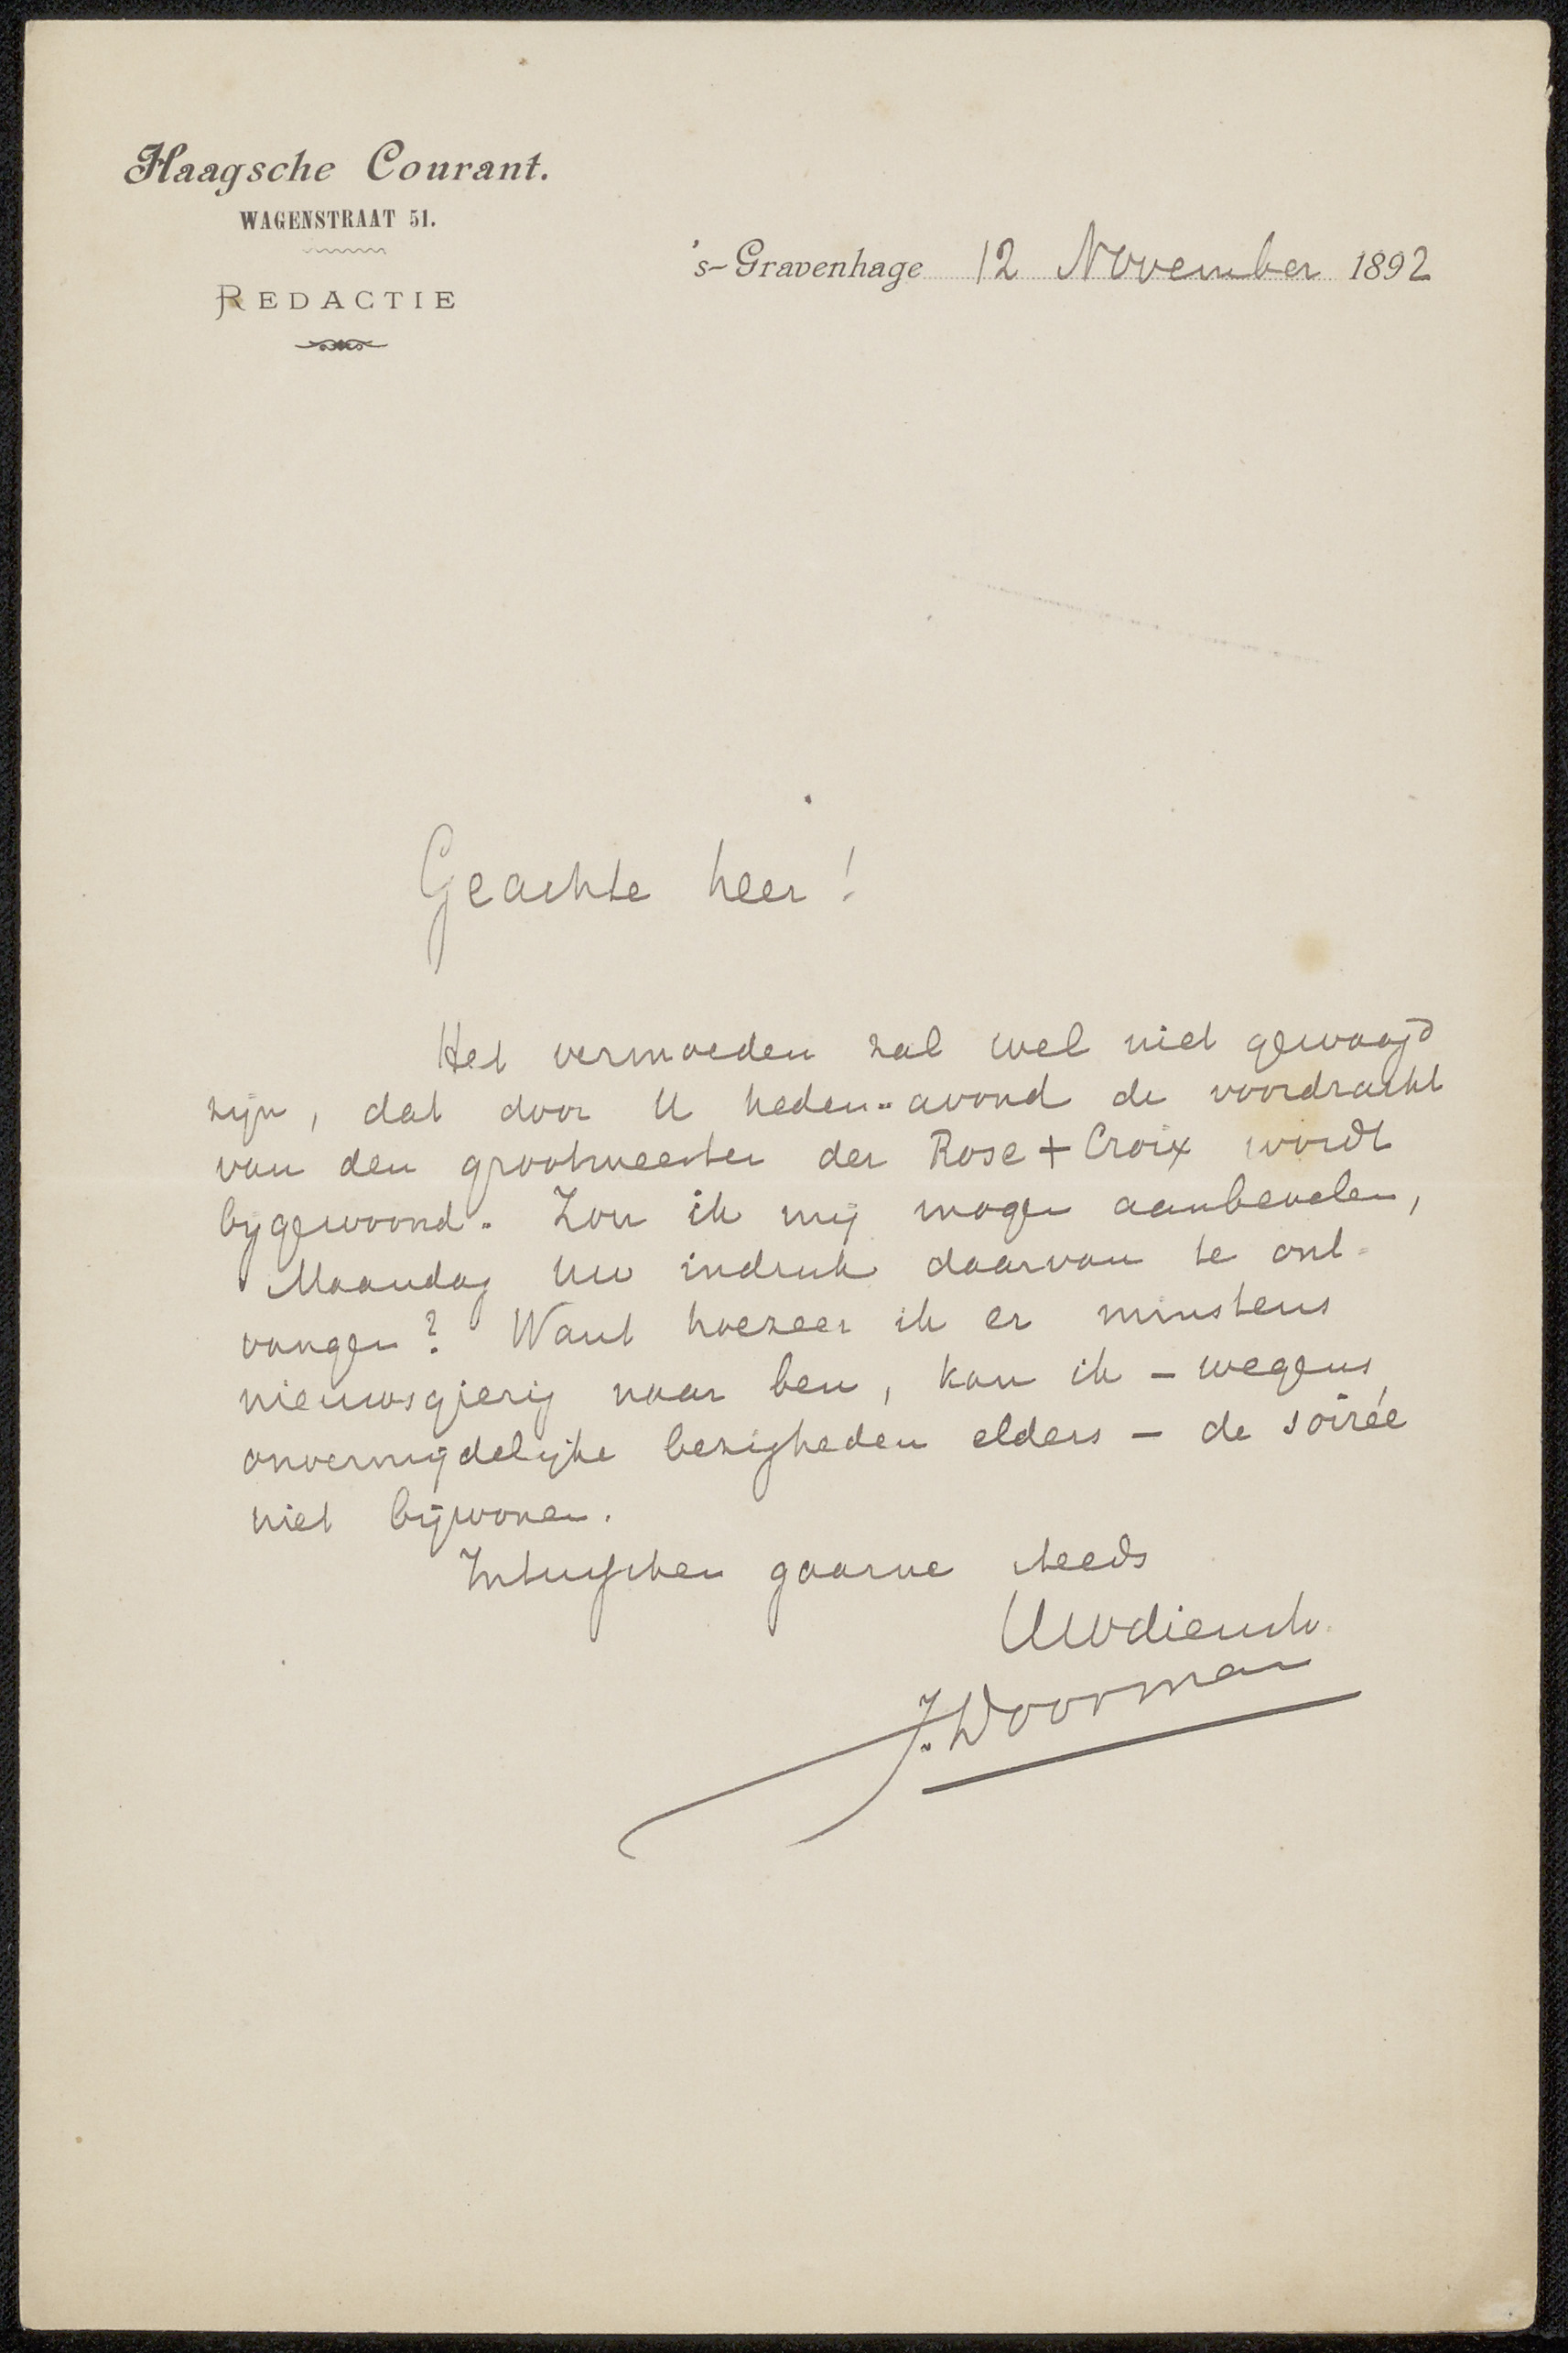 Haagsche Courant.
WAGENSTRAAT 51.
REDACTIE
's-Gravenhage 12 November 1892
Geachte heer!
Het vermoeden zal wel niet gewaagd
zijn, dat door U heden-avond de voordracht
van den grootmeester der Rose + Croix wordt
bijgewoond. Zou ik mij mogen aanbevelen,
Maandag Uw indruk daarvan te ont-
vangen? Want hoezeer ik er minstens
nieuwsgierig naar ben, kan ik - wegens
onvermijdelijke bezigheden elders - de soirée
niet bijwonen.
Intusschen gaarne steeds
Uwdienstv.
J. Doorman